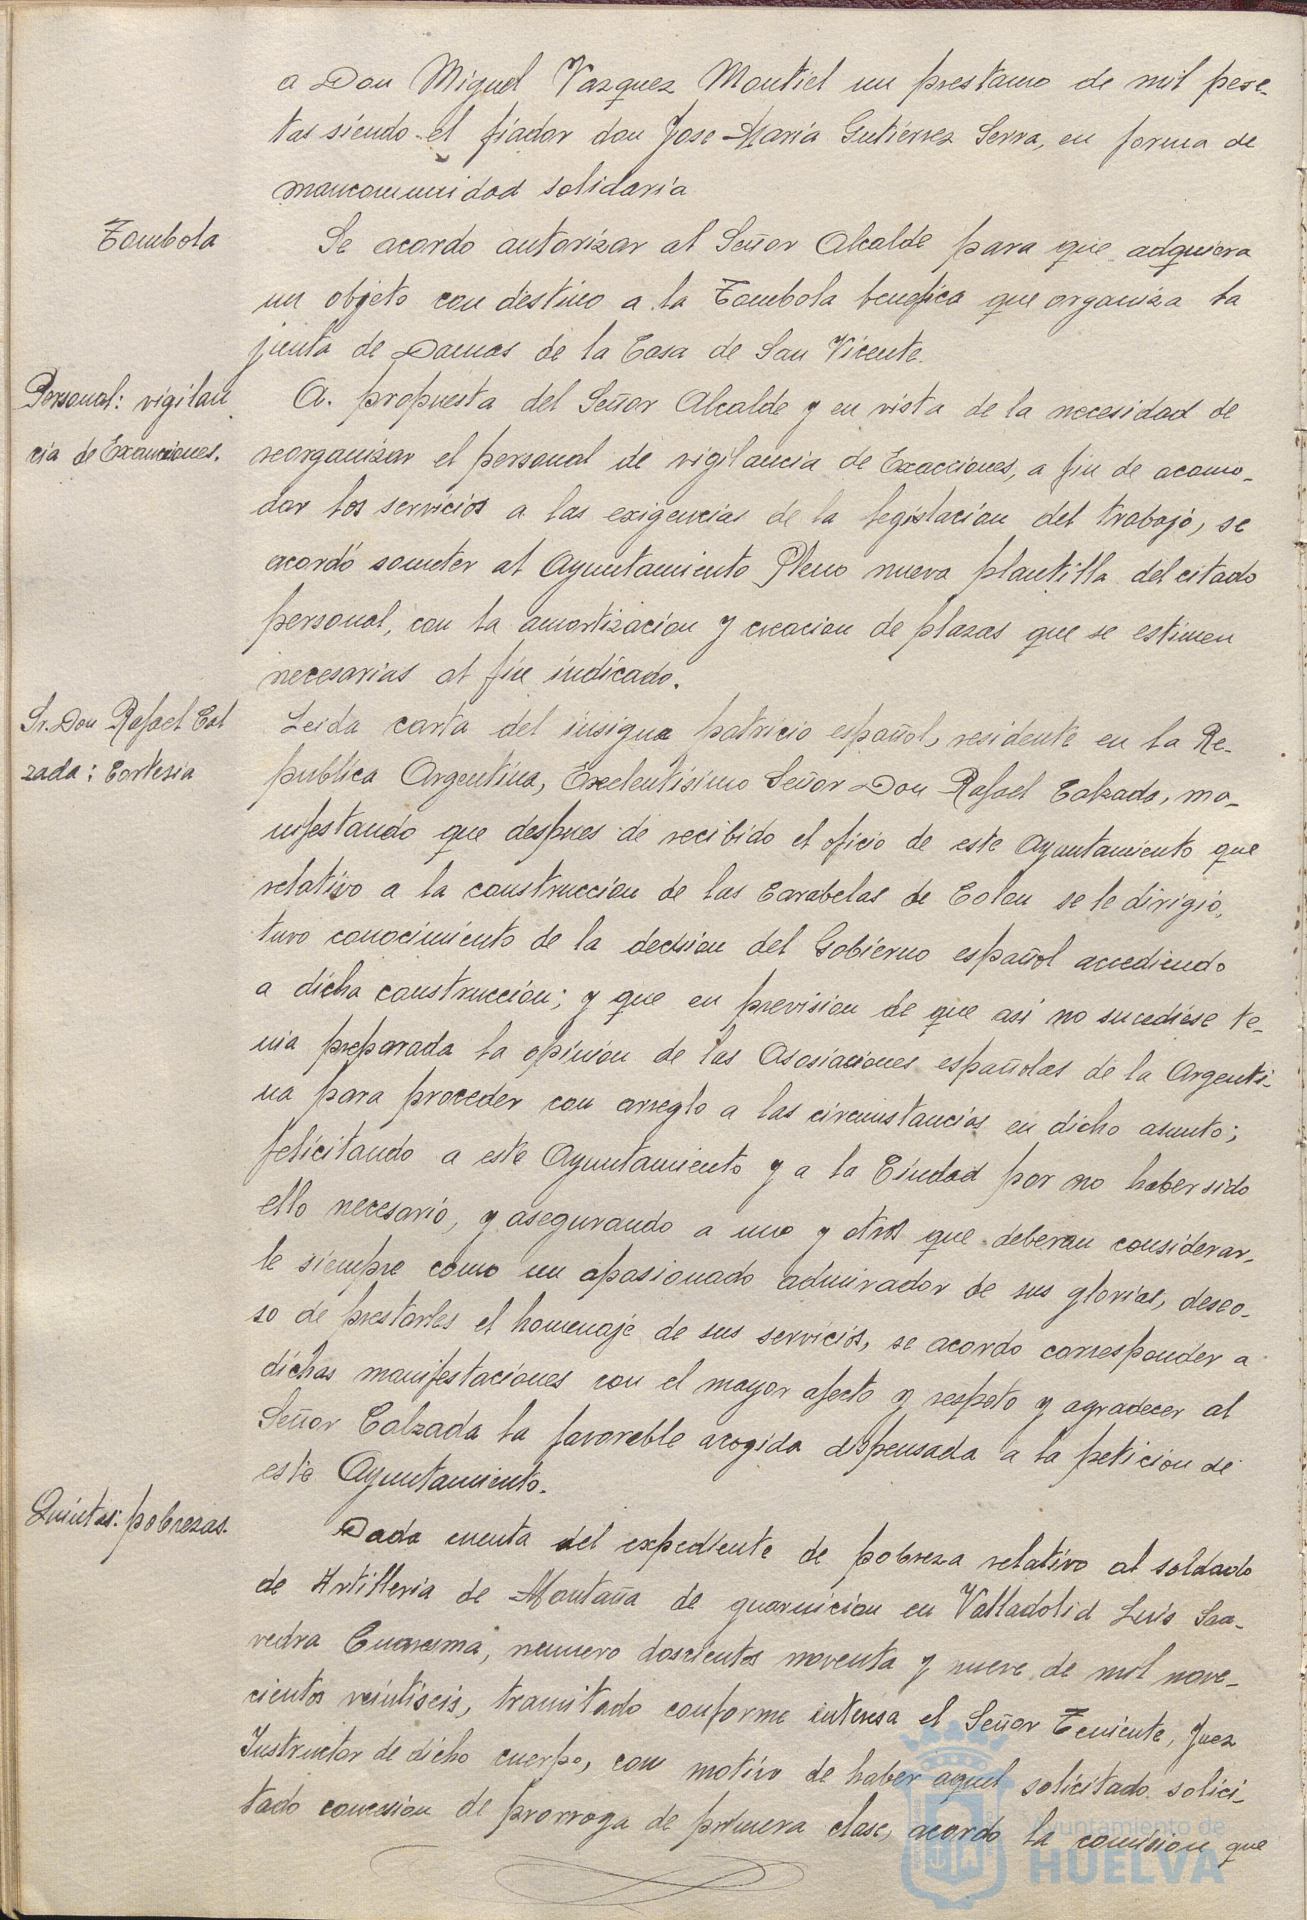 a Don Miguel Vazquez Montiel un prestamo de mil pese-
tas siendo el fiador don Jose María Gutiérrez Serra, en forma de
mancomunidad solidaria
Tombola
Se acordo autorizar al Señor Alcalde para que adquiera
un objeto con destino a la Tombola benefica que organiza la
junta de Damas de la Casa de San Vicente.
Personal: vigilan
cia de Exacciones.
A. propuesta del Señor Alcalde y en vista de la necesidad de
reorganizar el personal de vigilancia de Exacciones, a fin de acomo-
dar los servicios a las exigencias de la legislacion del trabajo, se
acordó someter al Ayuntamiento Pleno nueva plantilla del citado
personal, con la amortizacion y creacion de plazas que se estimen
necesarias al fin indicado.
Sr. Don Rafael Cal
zada: Cortesia
Leida carta del insigne patricio español, residente en la Re-
publica Argentina, Excelentisimo Señor Don Rafael Calzada, ma-
nifestando que despues de recibido el oficio de este Ayuntamiento que
relativo a la construccion de las Carabelas de Colon se le dirigió,
tuvo conocimiento de la decision del Gobierno español accediendo
a dicha construcción; y que en prevision de que asi no sucediese te-
nia preparada la opinion de las Asosiaciones españolas de la Argenti-
na para proceder con arreglo a las circunstancias en dicho asunto;
felicitando a este Ayuntamiento y a la Ciudad por no haber sido
ello necesario, y asegurando a uno y otros que deberan considerar-
le siempre como un apasionado admirador de sus glorias, deseo-
so de prestarles el homenaje de sus servicios, se acordo corresponder a
dichas manifestaciones con el mayor afecto y respeto y agradecer al
Señor Calzada la favorable acogida dispensada a la peticion de
este Ayuntamiento.
Quintas: pobrezas.
Dada cuenta del expediente de pobreza relativo al soldado
de Artilleria de Montaña de guarnicion en Valladolid Luis Saa-
vedra Cuaresma, numero doscientos noventa y nueve de mil nove-
cientos veintiseis, tramitado conforme interesa el Señor Teniente, Juez
Instructor de dicho cuerpo, con motivo de haber aquel solicitado solici-
tado concesion de prorroga de primera clase, acordo la comision que
Ayuntamiento de
HUELVA